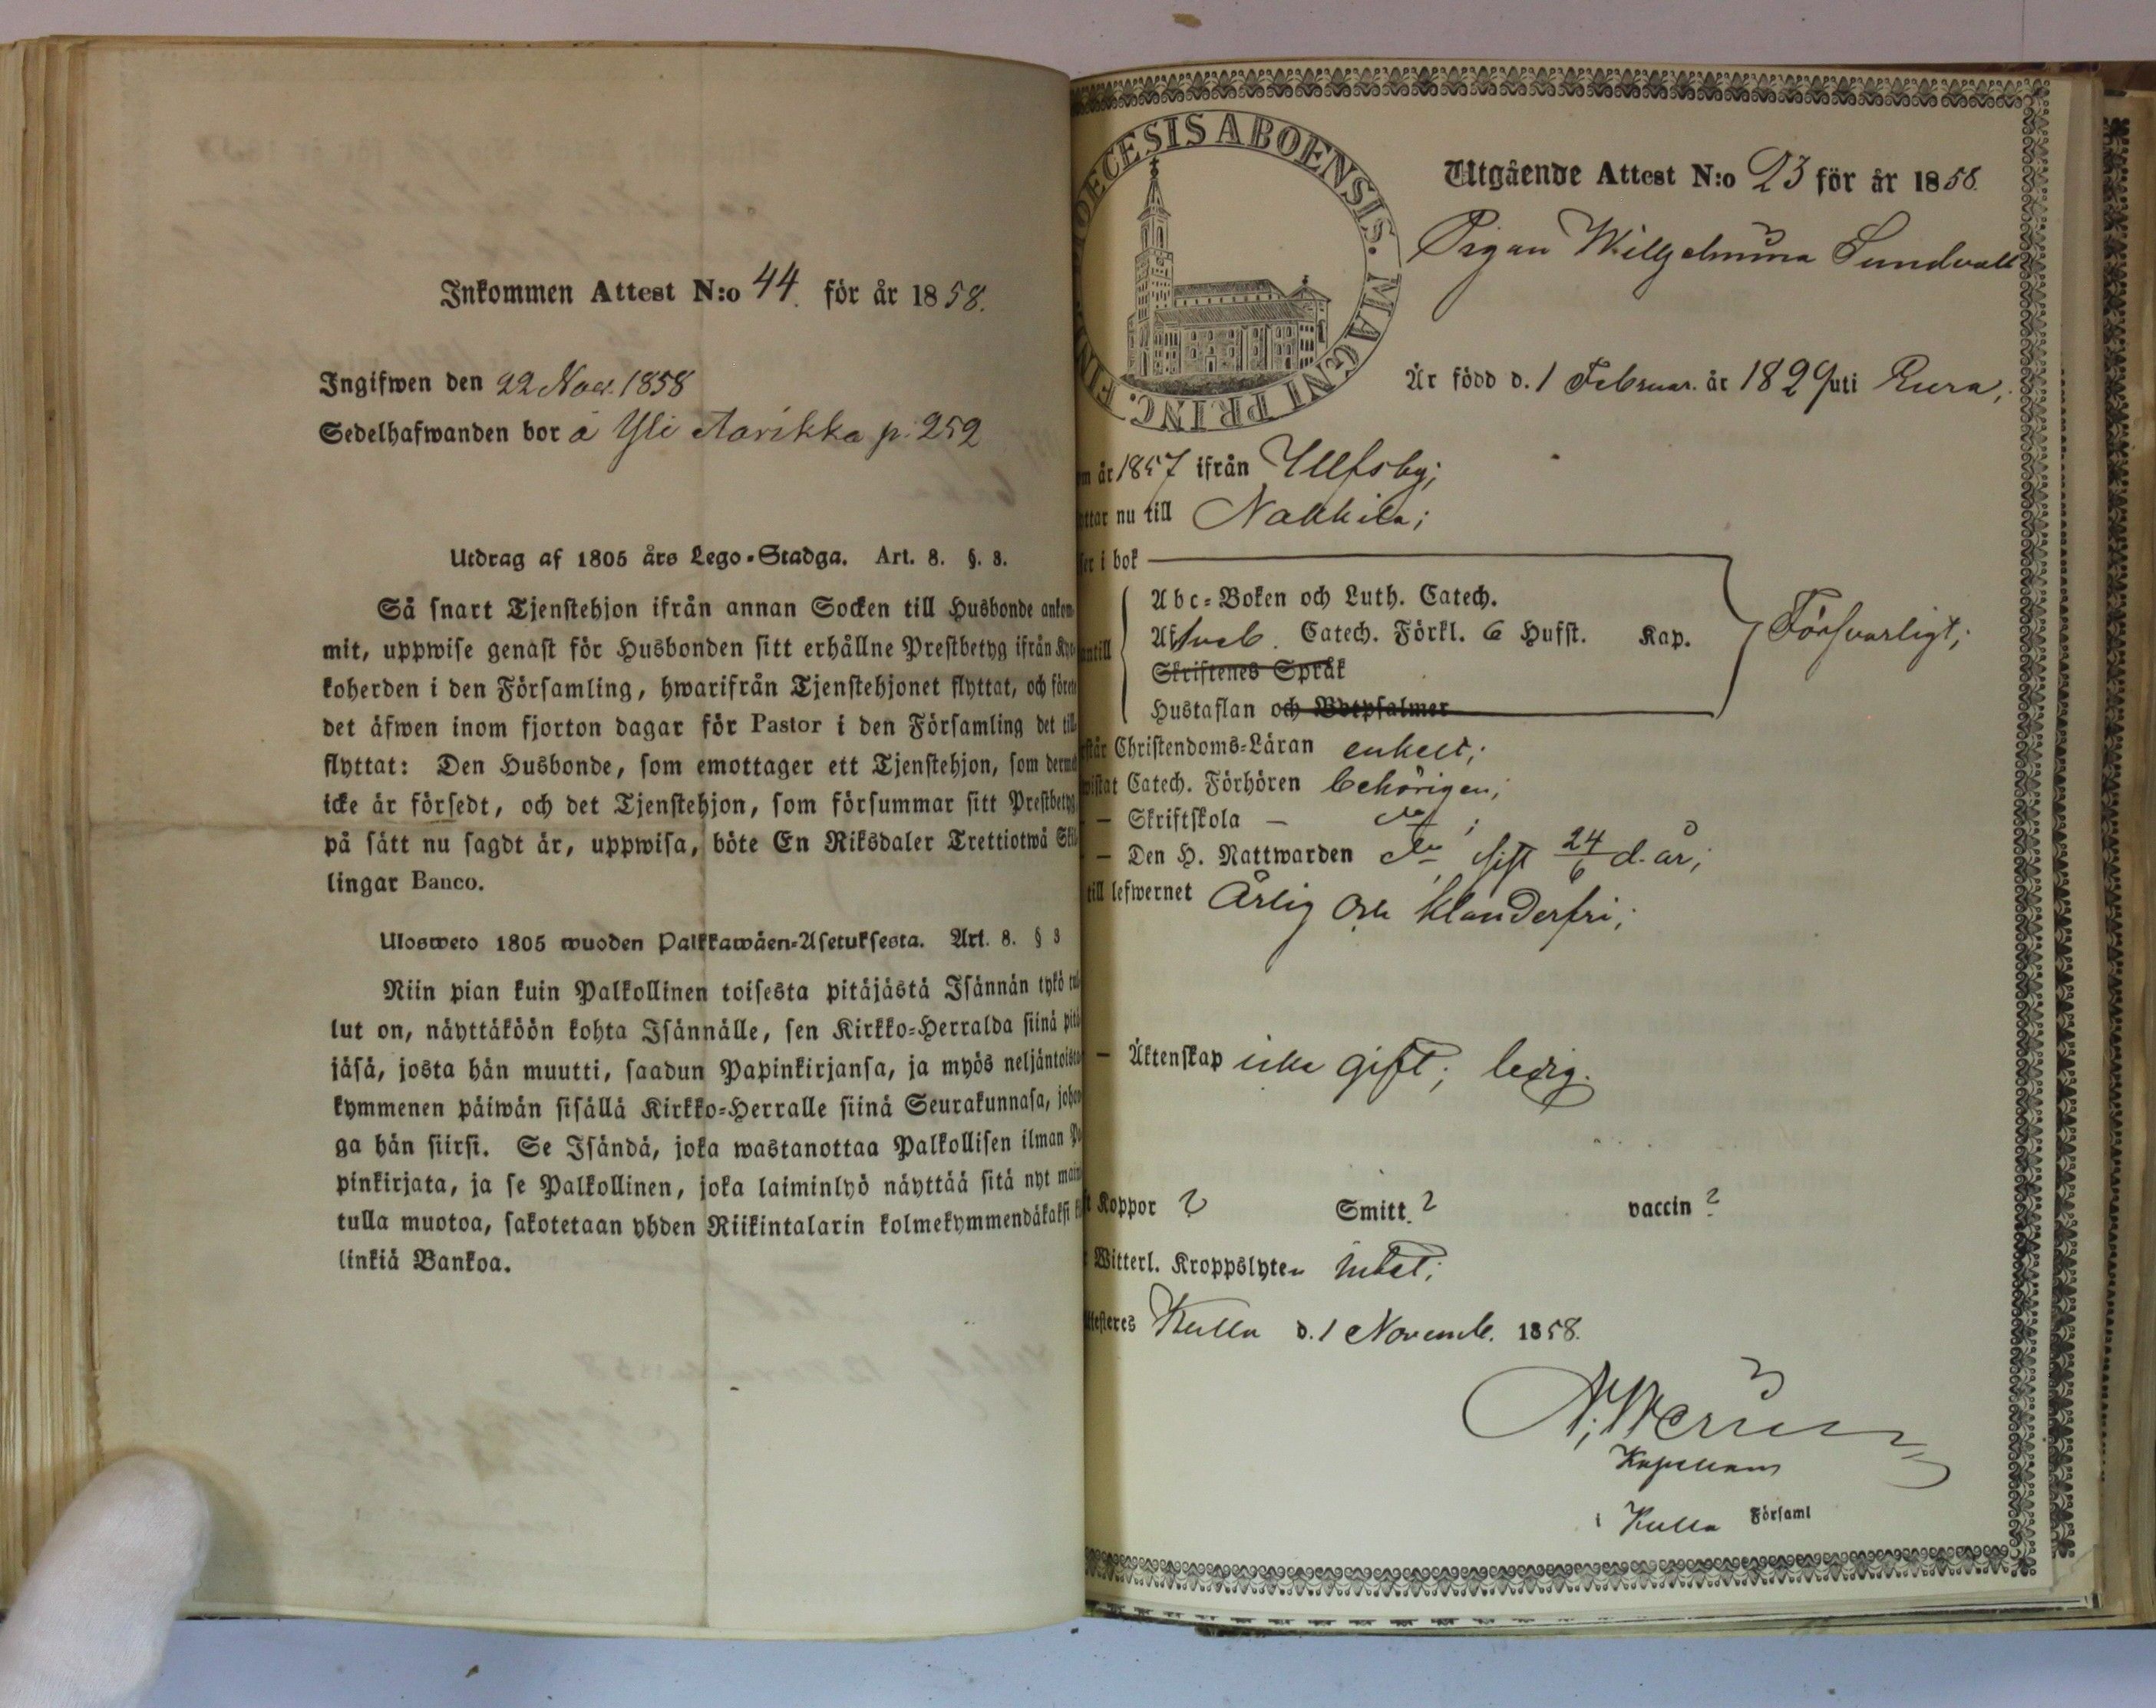 Inkommen Attest N:o 44. för år 1858.
Ingifwen den 22 Nov. 1858
Sedelhafwanden bor å Yli Aarikka p. 252
Utdrag af 1805 års Lego-Stadga. Art. 8. §. 8.
Så snart Tjenstehjon ifrån annan Socken till Husbonde ankom
mit, uppwise genast för Husbonden sitt erhållne Prestbetyg ifrån Kyr
koherden i den Församling, hwarifrån Tjenstehjonet flyttat, och förete
det äfwen inom fjorton dagar för Pastor i den Församling det till
flyttat: Den Husbonde, som emottager ett Tjenstehjon, som dermed
icke är försedt, och det Tjenstehjon, som försummar sitt Prestbetyg
på sätt nu sagdt är, uppwisa, böte En Riksdaler Trettiotwå Skil
lingar Banco.
Ulosweto 1805 wuoden Palkkawäen-Asetuksesta. Art. 8. § 8
Niin pian kuin Palkollinen toisesta pitäjästä Isännän tykö tul
lut on, näyttäköön kohta Isännälle, sen Kirkko-Herralda siinä pitä
jäsä, josta hän muutti, saadun Papinkirjansa, ja myös neljäntoista
kymmenen päiwän sisällä Kirkko-Herralle siinä Seurakunnasa, johon
ga hän siirsi. Se Isändä, joka wastanottaa Palkollisen ilman Pa
pinkirjata, ja se Palkollinen, joka laiminlyö näyttää sitä nyt main
tulla muotoa, sakotetaan yhden Riikintalarin kolmekymmendäkaksi kil
linkiä Bankoa.
DIOECESIS ABOENSIS. MAGNI PRINC. FIN
Utgående Attest N:o 23 för år 1858.
Pigan Wilhelmina Sundvall
Är född d. 1 Februar. år 1829 uti Eura,
om år 1857 ifrån Ulfsby;
yttar nu till Nakkila;
ser i bok
Abc-Boken och Luth. Catech.
Af Catech. Förkl. 6 Hufst. Kap.
Försvarligt;
antill
Skriftenes Språk
Hustaflan och Botpsalmer
rstår Christendoms-Läran enkelt;
wistat Catech. Förhören behörigen;
— Skriftskola — do;
— Den H. Nattwarden do, sist 24/6 d. år;
till lefwernet Ärlig och klanderfri;
— Äktenskap icke gift; ledig.
t Koppor ? Smitt. ? vaccin ?
Witterl. Kroppslyten intet;
ttesteres Kulla d. 1 Novemb. 1858.
Kapellan
i Kulla Församl